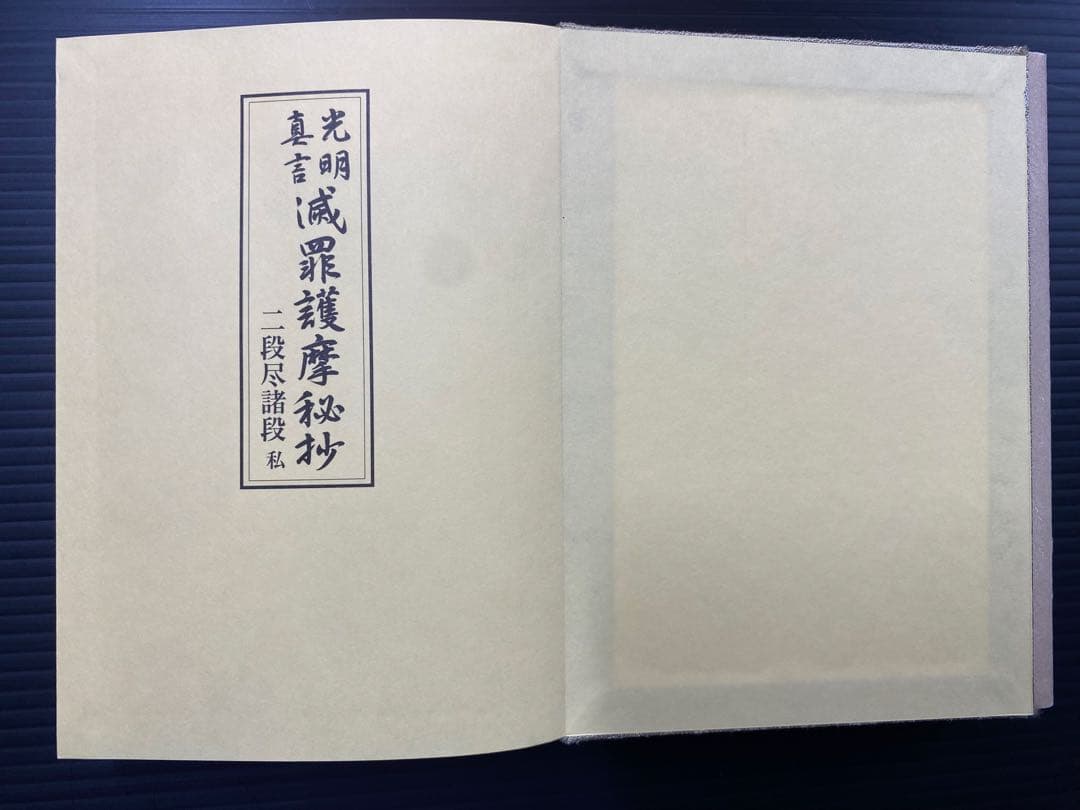 光明真言滅罪護摩秘抄
二段尽諸段 私